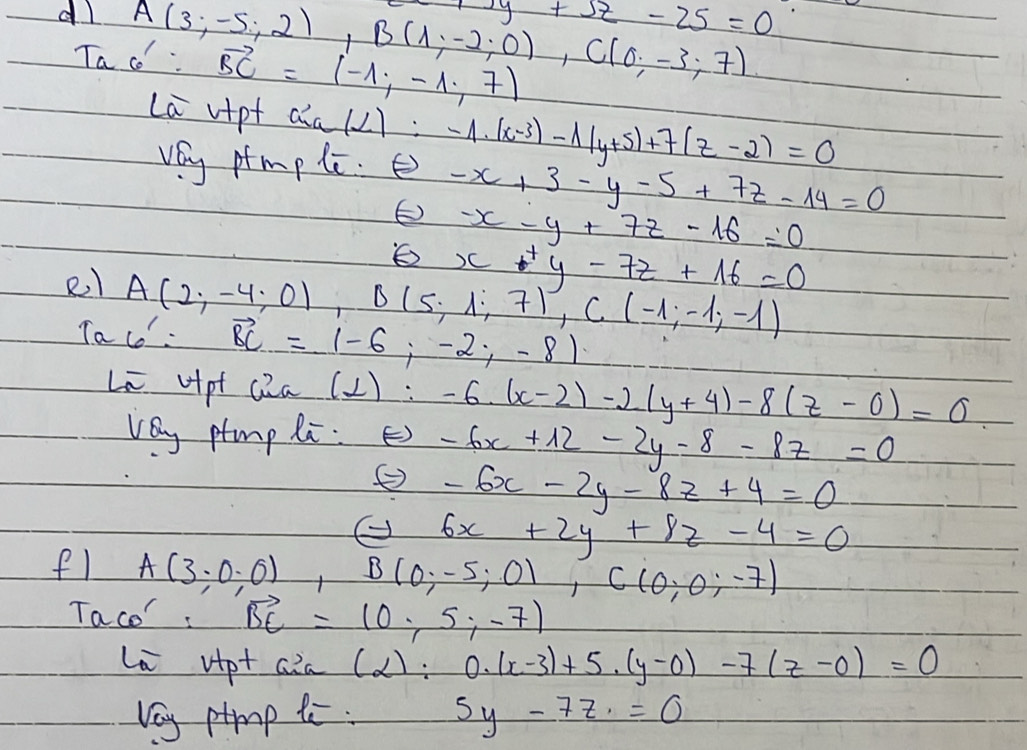 y + 5z - 25 = 0
d) A(3; -5; 2), B(1; -2; 0), C(0; -3; 7)
Ta có: \overrightarrow{BC} = (-1; -1; 7)
Là vtpt của (α): -1.(x-3) - 1(y+5) + 7(z - 2) = 0
Vậy ptmp là: ⇔ -x + 3 - y - 5 + 7z - 14 = 0
⇔ -x - y + 7z - 16 = 0
⇔ x + y - 7z + 16 = 0
e) A(2; -4; 0), B(5; 1; 7), C(-1; -1; -1)
Ta có: \overrightarrow{BC} = (-6; -2; -8).
Là vtpt của (α): -6.(x-2) - 2(y+4) - 8(z - 0) = 0.
Vậy ptmp là: ⇔ -6x + 12 - 2y - 8 - 8z = 0
⇔ -6x - 2y - 8z + 4 = 0
⇔ 6x + 2y + 8z - 4 = 0
f) A(3; 0; 0), B(0; -5; 0), C(0; 0; -7)
Ta có: \overrightarrow{BC} = (0; 5; -7)
Là vtpt của (α): 0.(x-3) + 5.(y-0) - 7(z-0) = 0
Vậy ptmp là: 5y - 7z = 0